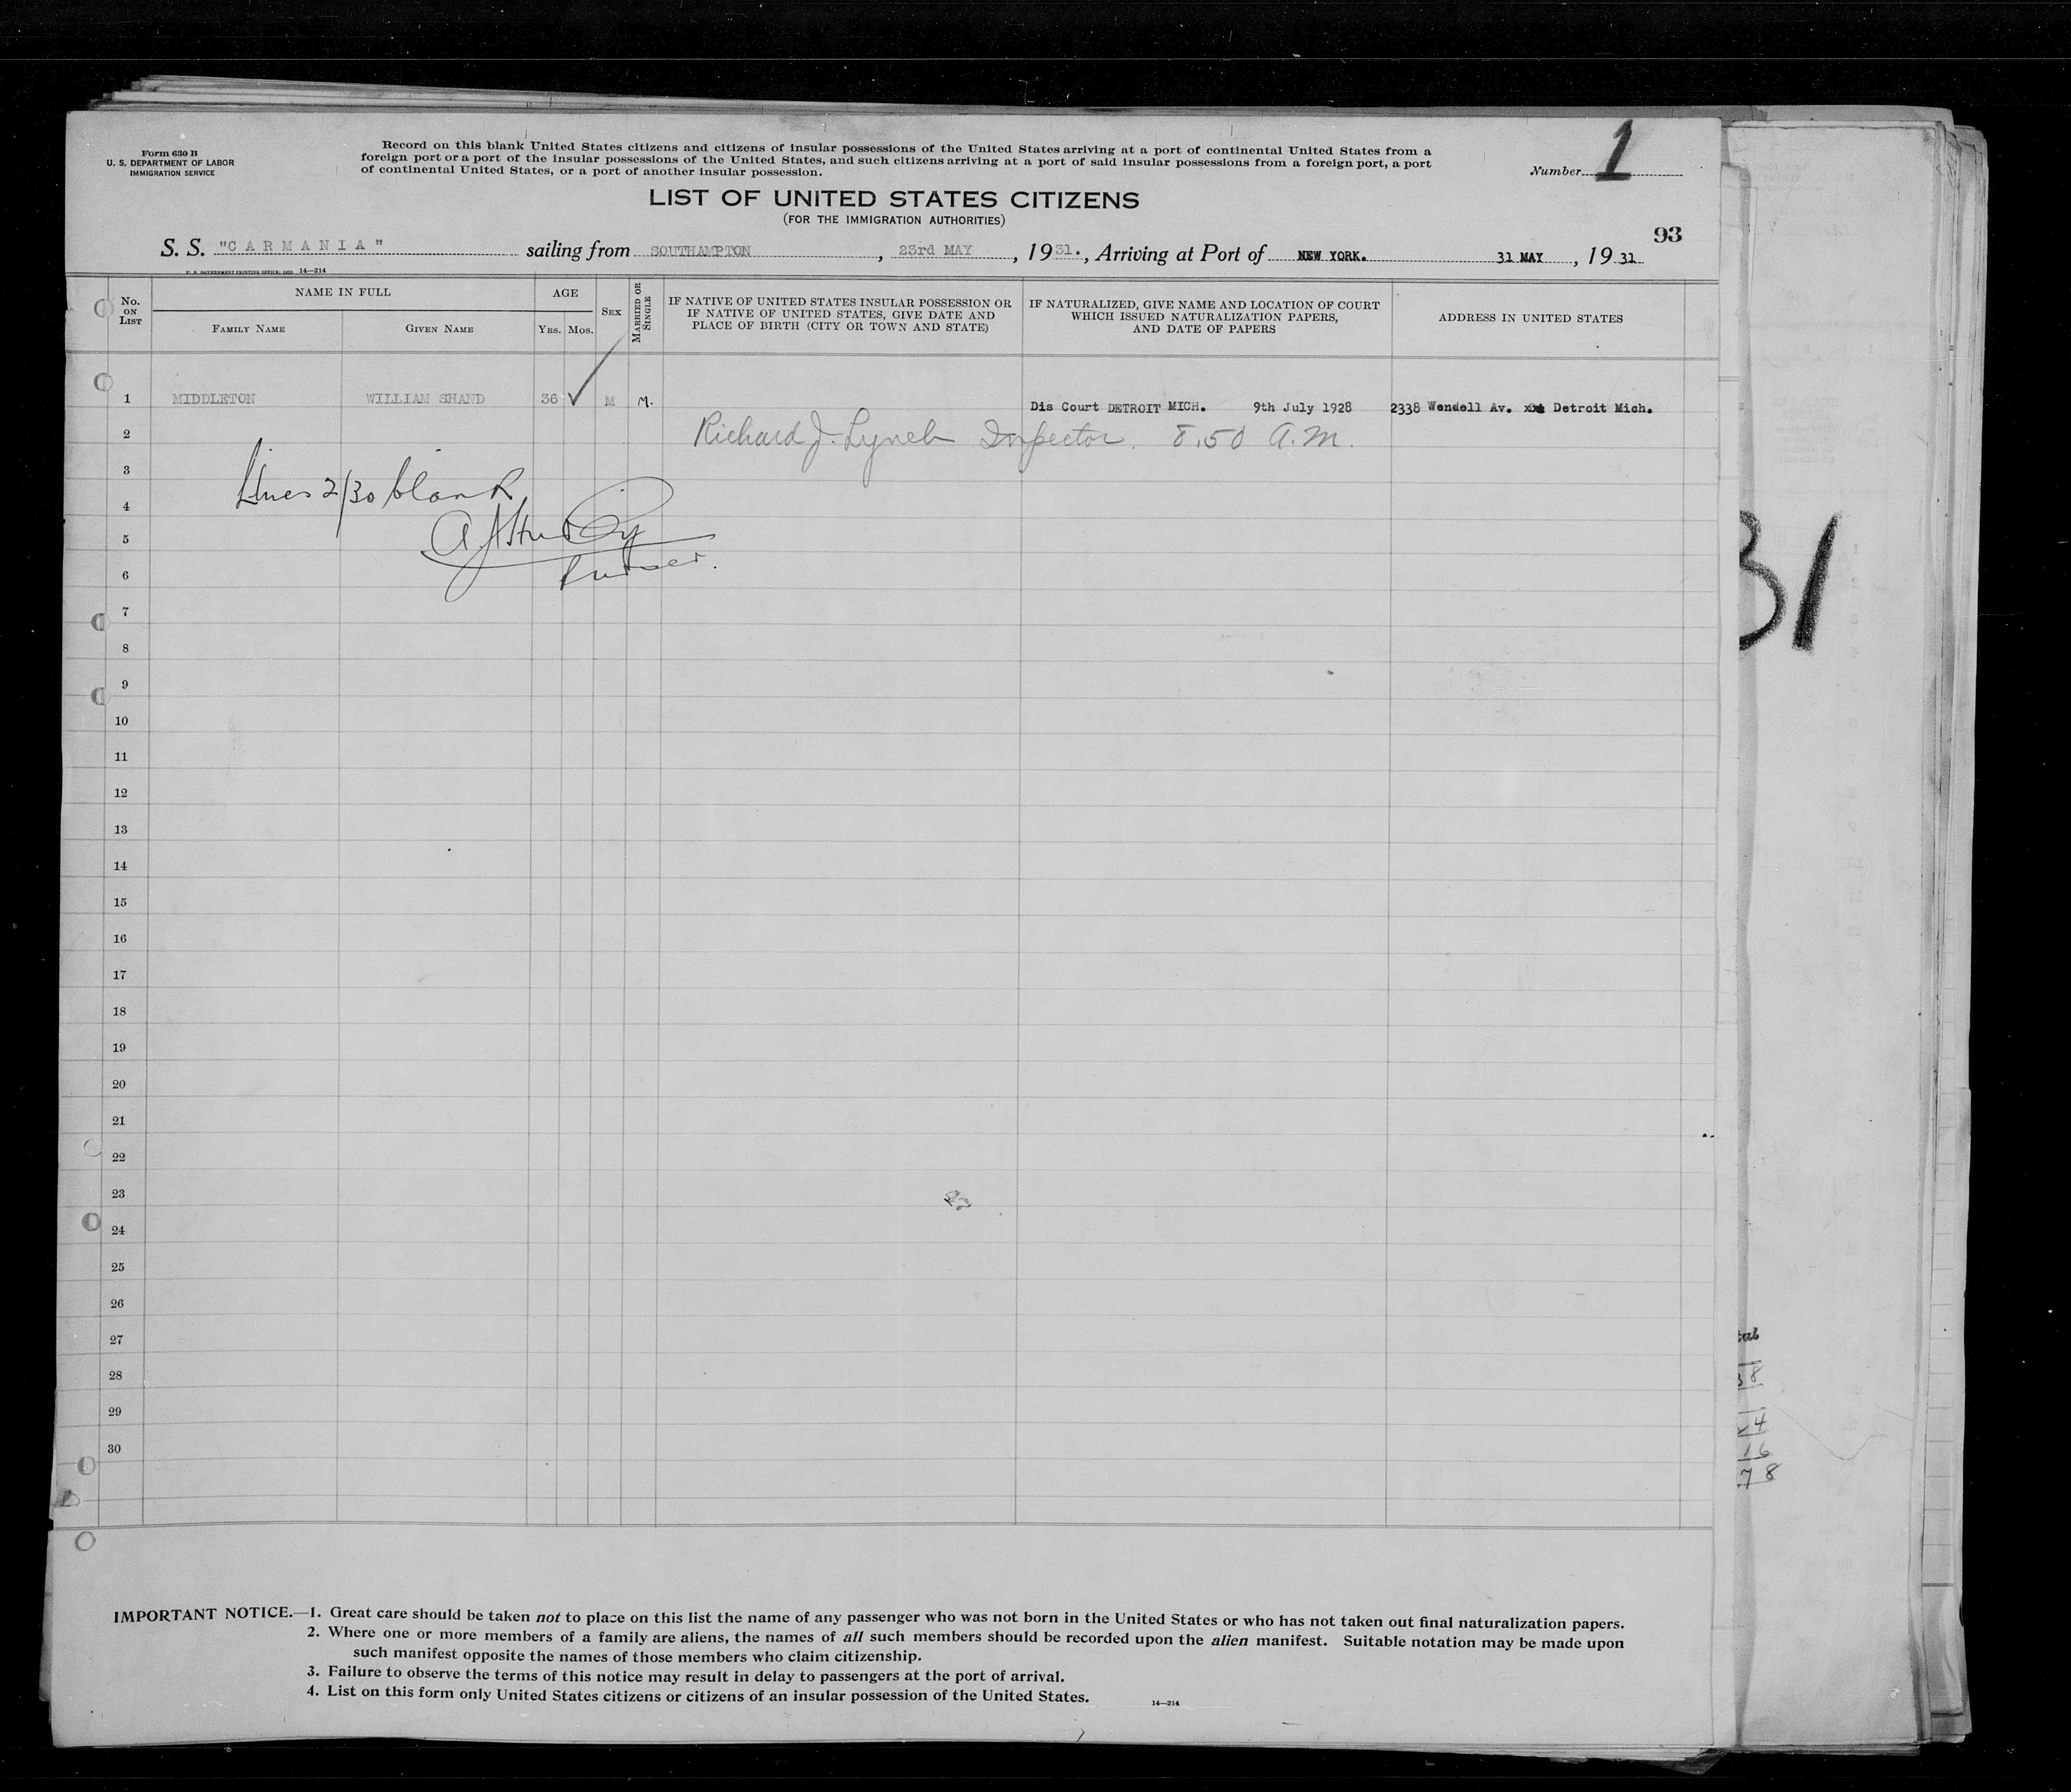 Form 630 B
U. S. DEPARTMENT OF LABOR
IMMIGRATION SERVICE
Record on this blank United States citizens and citizens of insular possessions of the United States arriving at a port of continental United States from a
foreign port or a port of the insular possessions of the United States, and such citizens arriving at a port of said insular possessions from a foreign port, a port
of continental United States, or a port of another insular possession.
Number 1
LIST OF UNITED STATES CITIZENS
(FOR THE IMMIGRATION AUTHORITIES)
93
S. S. "CARMANIA" sailing from SOUTHAMPTON, 23rd MAY, 1931., Arriving at Port of NEW YORK. 31 MAY, 1931
14—214
No. ON LIST
NAME IN FULL
FAMILY NAME
GIVEN NAME
AGE
YRS. MOS.
SEX
MARRIED OR SINGLE
IF NATIVE OF UNITED STATES INSULAR POSSESSION OR
IF NATIVE OF UNITED STATES, GIVE DATE AND
PLACE OF BIRTH (CITY OR TOWN AND STATE)
IF NATURALIZED, GIVE NAME AND LOCATION OF COURT
WHICH ISSUED NATURALIZATION PAPERS,
AND DATE OF PAPERS
ADDRESS IN UNITED STATES
1 MIDDLETON WILLIAM SHAND 36 M M. Dis Court DETROIT MICH. 9th July 1928 2338 Wendell Av. Detroit Mich.
2 Richard J. Lynch Inspector. 8.50 A.M.
3 Lines 2/30 blank
4
5
6 Purser.
7
8
9
10
11
12
13
14
15
16
17
18
19
20
21
22
23
24
25
26
27
28
29
30
31
38
24
16
78
IMPORTANT NOTICE.—1. Great care should be taken not to place on this list the name of any passenger who was not born in the United States or who has not taken out final naturalization papers.
2. Where one or more members of a family are aliens, the names of all such members should be recorded upon the alien manifest. Suitable notation may be made upon
such manifest opposite the names of those members who claim citizenship.
3. Failure to observe the terms of this notice may result in delay to passengers at the port of arrival.
4. List on this form only United States citizens or citizens of an insular possession of the United States.
14—214